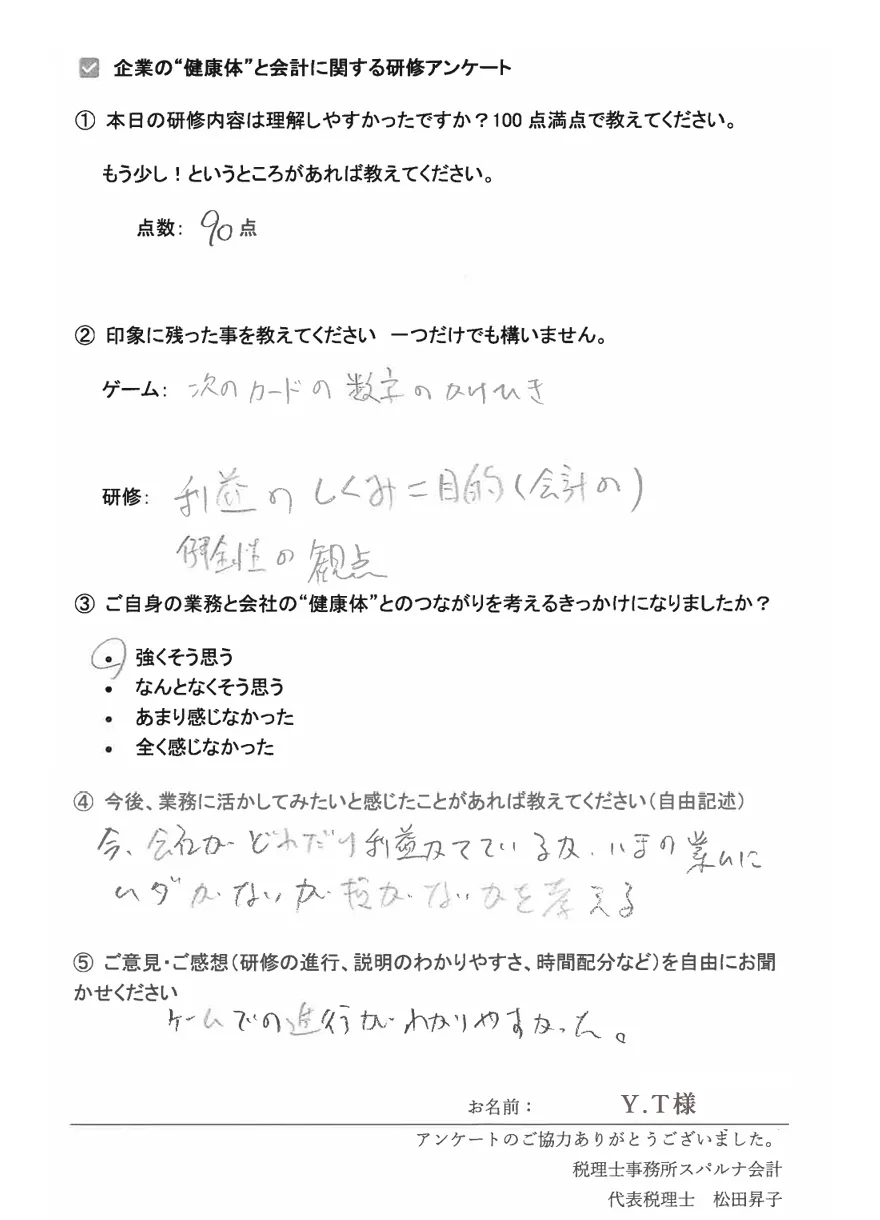 企業の“健康体”と会計に関する研修アンケート
① 本日の研修内容は理解しやすかったですか？100 点満点で教えてください。
もう少し！というところがあれば教えてください。
点数： 90 点
② 印象に残った事を教えてください 一つだけでも構いません。
ゲーム： 次のカードの数字のかけひき
研修： 利益のしくみ＝目的（会計の）
健全性の観点
③ ご自身の業務と会社の“健康体”とのつながりを考えるきっかけになりましたか？
• 強くそう思う
• なんとなくそう思う
• あまり感じなかった
• 全く感じなかった
④ 今後、業務に活かしてみたいと感じたことがあれば教えてください（自由記述）
今、会社がどれだけ利益 でているか、いまの業ムに
ムダがないか がないかを考える
⑤ ご意見・ご感想（研修の進行、説明のわかりやすさ、時間配分など）を自由にお聞
かせください
ゲームでの進行がわかりやすかった。
お名前： Y.T様
アンケートのご協力ありがとうございました。
税理士事務所スパルナ会計
代表税理士 松田昇子